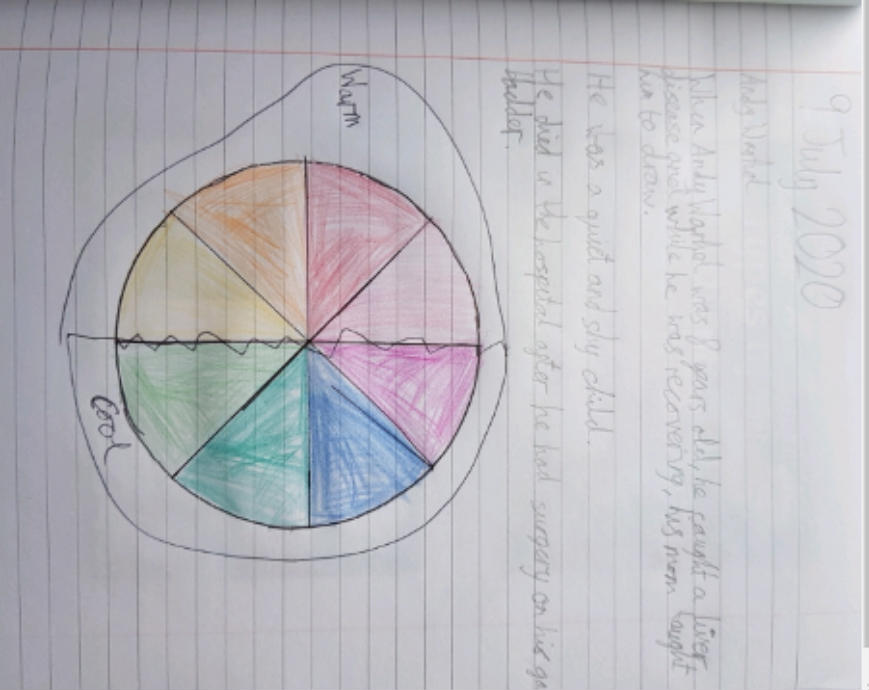 9 July 2020
Andy Warhol
When Andy Warhol was 8 years old, he caught a liver
disease and while he was recovering, his mom taught
him to draw.
He was a quiet and shy child.
He died in the hospital after he had surgery on his ga
bladder.
Warm
Cool